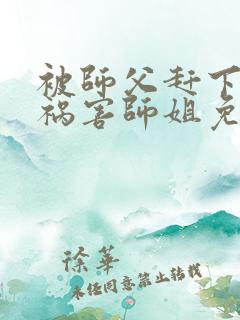 被師父赶下
祸害師姐免
徐華
未经同意禁止转载